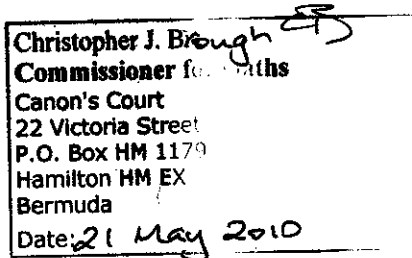 Christopher J. Brough
Commissioner for Oaths
Canon's Court
22 Victoria Street
P.O. Box HM 1179
Hamilton HM EX
Bermuda
Date: 21 May 2010